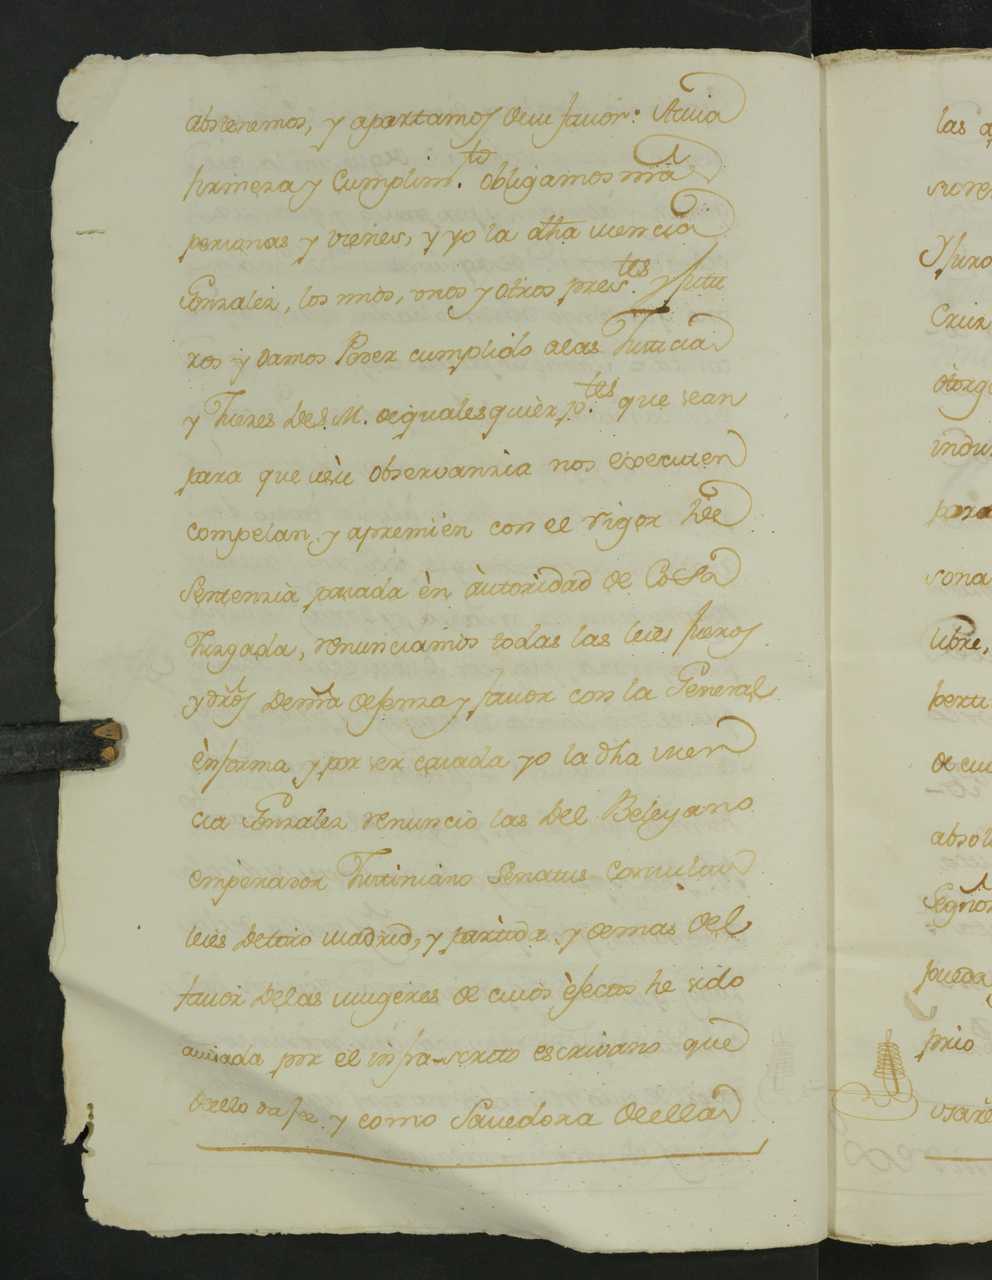 absteremos, y apartamos de su favor: A cuia
firmeza y Cumplim.to obligamos nrãs
personas y vienes, y yo la dha vicencia
Gonzalez, los mios, vnos y otros pres.tes y futu
ros y damos Poder cumplido alas Justicias
y Juezes de S. M. de qualesquièr p.tes que sean
para que à su observanzia nos executen
compelan, y apremièn con el rigor de
Sentenzia pasada èn àutoridad de Cosa
Juzgada, renunciamos todas las leies fueros
y drõs de nrã defensa y favor con la General
ènforma y por ser casada yo la dha vicen
cia Gonzalez renuncio las del Beleyano
emperador Justiniano Senatus Consultus
leies de toro Madrid, y partida y demas del
favor de las mugeres de cuios èfectos he sido
auisada por el infra-scrito escrivano que
dello da fee y como Savedora de ellas
las
Cruz
otorg
indu
para
sona
libre,
pertu
de cu
absol
pueda
prio